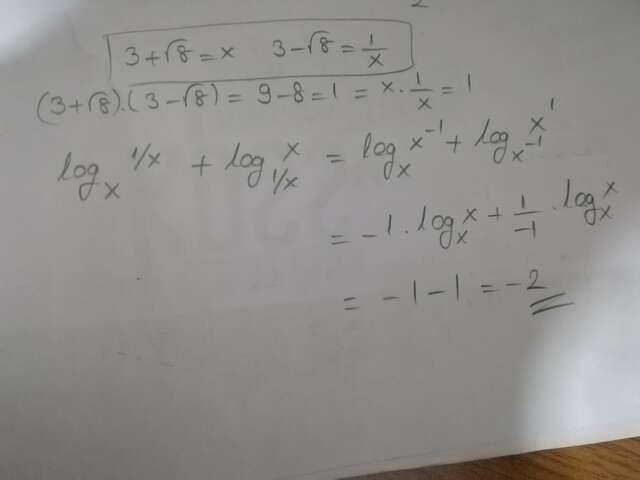 3+√8 = x 3-√8 = 1/x
(3+√8).(3-√8) = 9-8=1 = x.1/x = 1
log_x 1/x + log_1/x x = log_x x^-1 + log_x^-1 x^1
= -1.log_x x + 1/-1 . log_x x
= -1-1 = -2